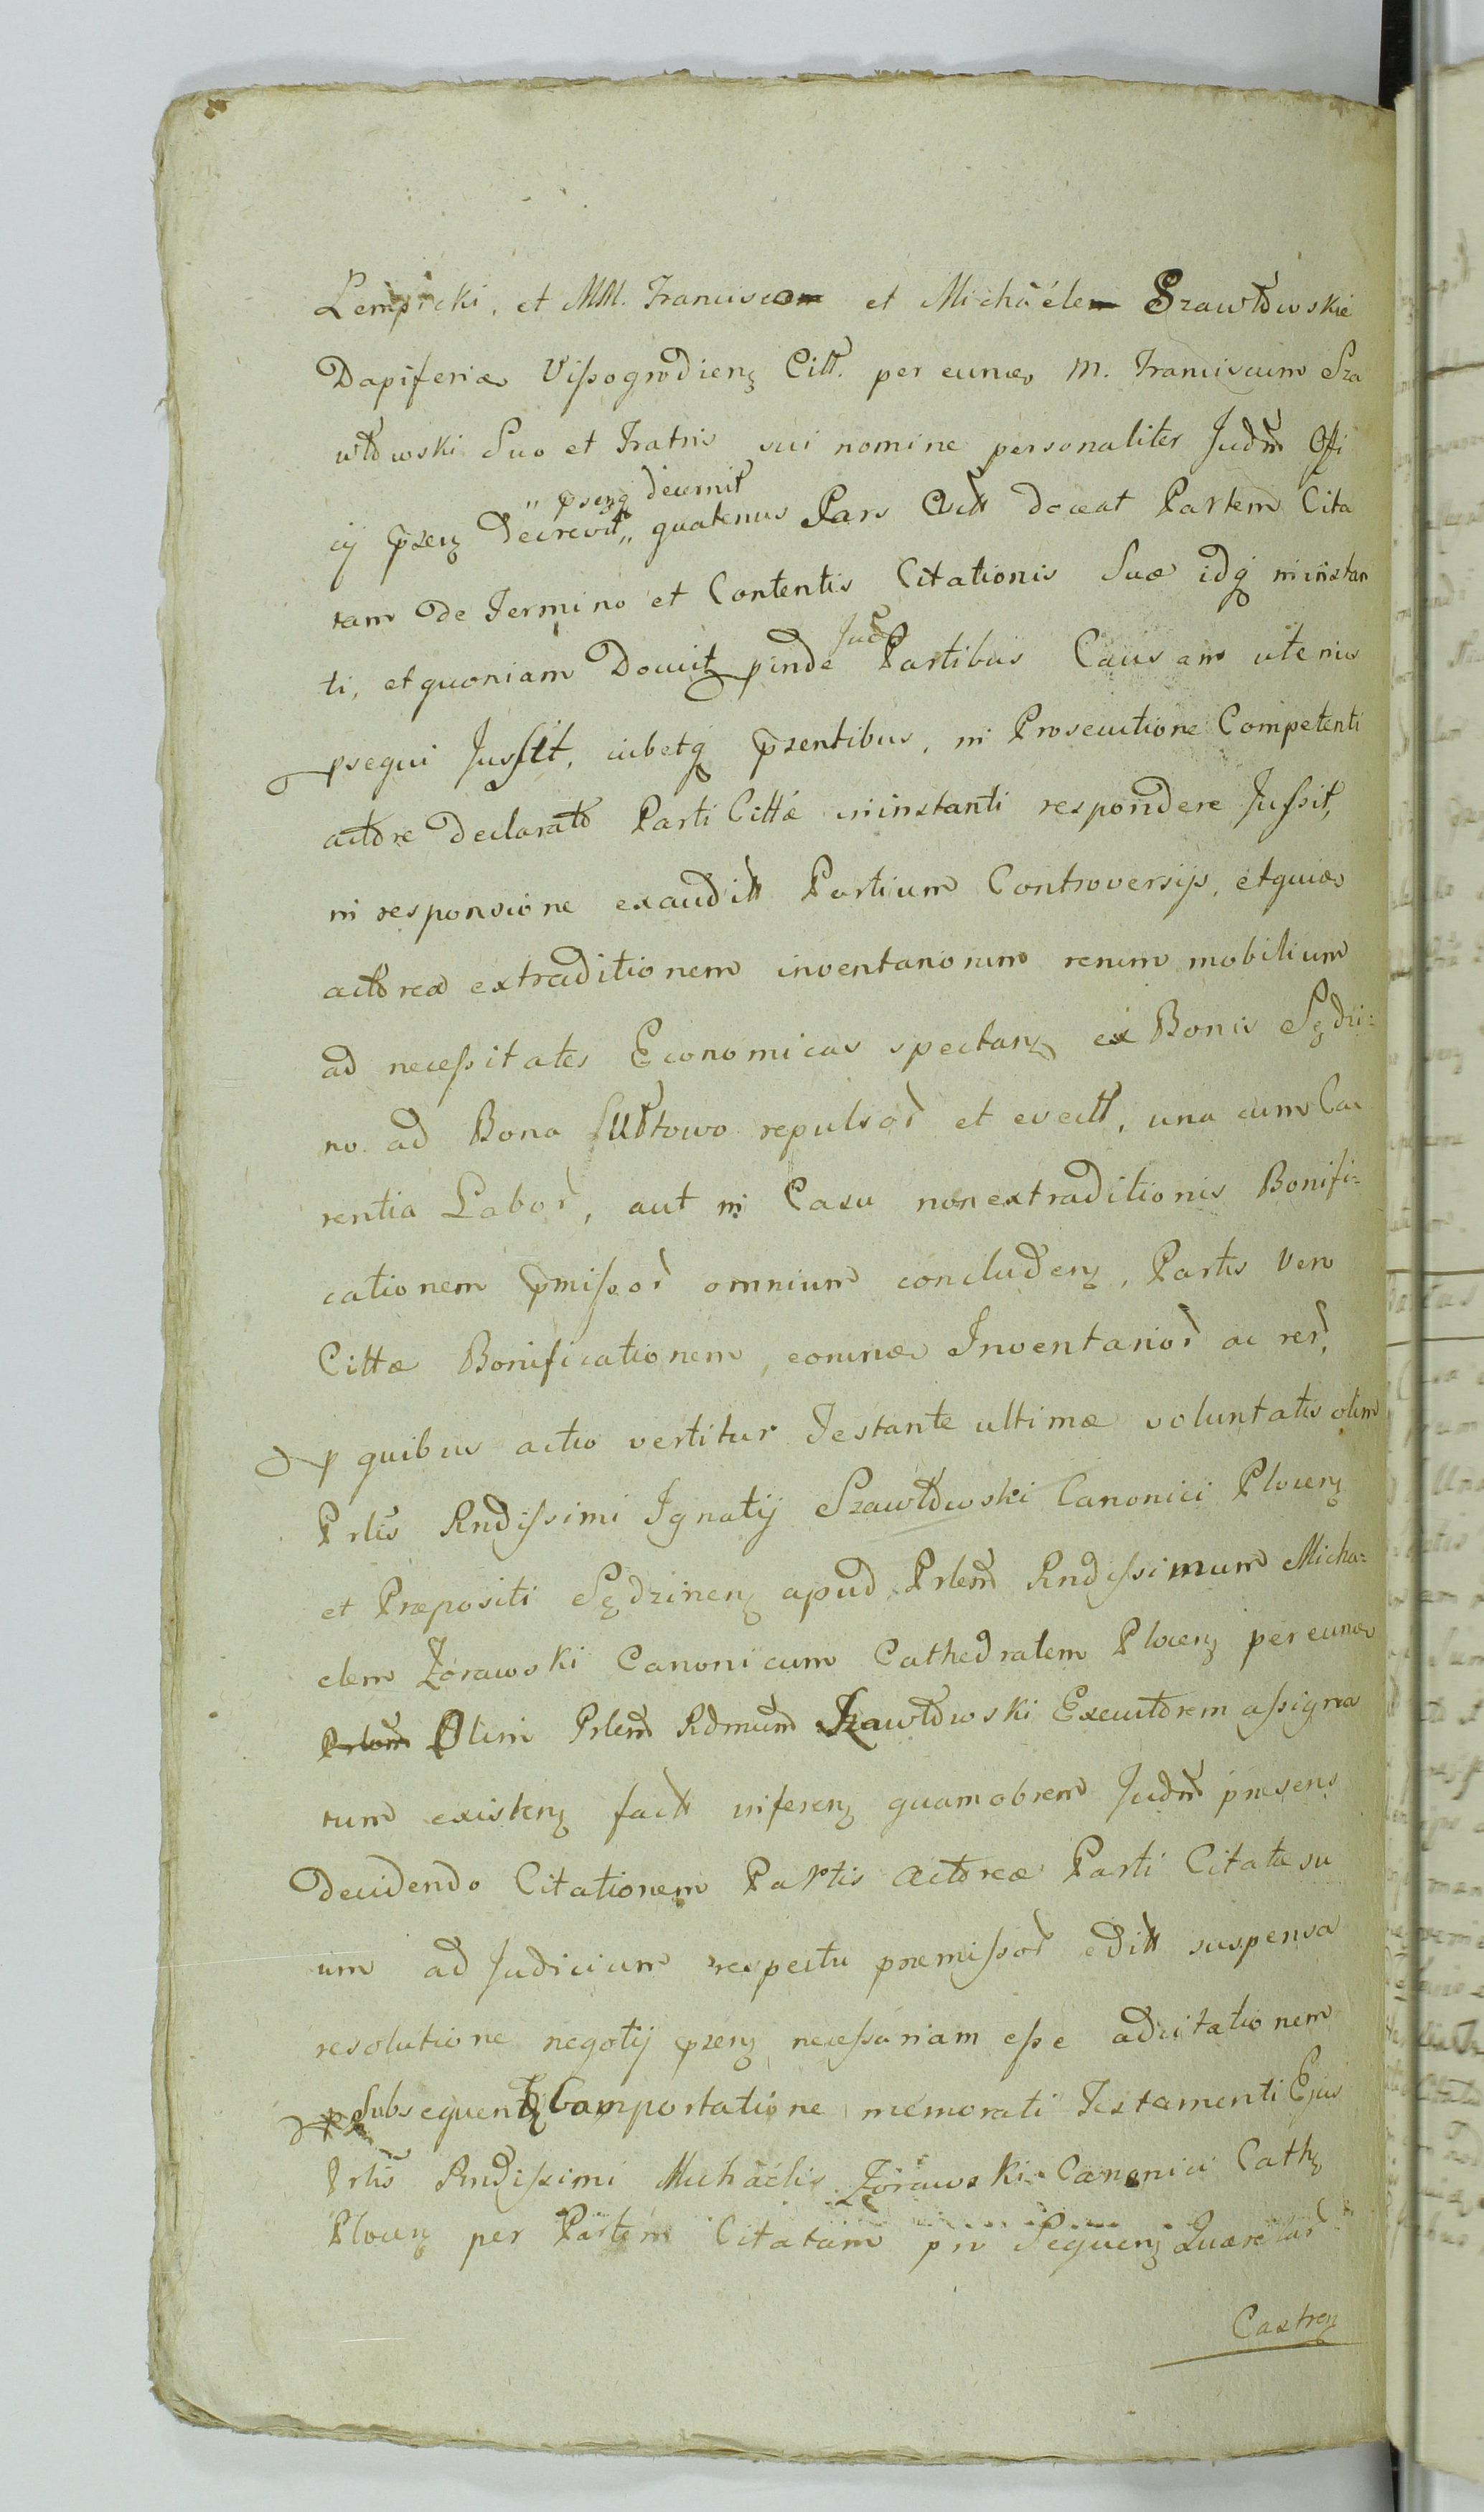 Lempicki, et MM. Franciscum et Michäélem Szawłowskie
Dapiferiæ Vissogrodienẓ Citt. per eunæ M. Franciscum Sza
włowski Suo et Fratris sui nomine personaliter Judm Offi
„ pseng decernit
cij przenẓ Decrevit„ quatenus Pars Actt doceat Partem Cita
tam De Termino et Contentis Citationis Suæ idq ininstan
Jud
ti, et quoniam Docuit, pinde Partibus Causam ulterius
psequi Jussit, iubetq przentibus, in Prosecutione Competenti
actore Declarato Parti Cittæ ininstanti respondere Jussit,
in responsione exauditt Partium Controversijs, et quia
actorea extraditionem inventariorum rerum mobilium
ad necessitates Economicas spectanẓ ex Bonis Sędzi-
no ad Bona repulsor et evectt, una cum Ca
rentia Labor, aut in Casu nonextraditionis Bonifi-
cationem pmissor omnium concludenẓ, Partis vero
Cittæ Bonificationem, eorum Inventarior ac rer,
p quibus actio vertitur Testante ultimæ voluntatis olim
Prlis Rndissimi Ignatij Szawłowski Canonici Plocenẓ
et Præpositi Sędzinenẓ apud Prlem Rndissimum Micha-
elem Zórawski Canonicum Cathedralem Plocenẓ per eunæ
Prlem Olim Prlem Rdmum Szawłowski Executorem assigna
tum existenẓ factt inferenẓ quamobrem Judm præsens
Decidendo Citationem Partis Actoreæ Parti Citatæ su
um ad Judicium respectu præmissor editt suspensa
resolutione negotij przenẓ necessariam esse adcitationem
p Subsequenẓ Comportatione memorati Testamenti Ejus
Prlis Rndissimi Michäelis Zórawski Canonici Cathẓ
Plocenẓ per Partem Citatam pro Sequenẓ Querelar
Castrenẓ